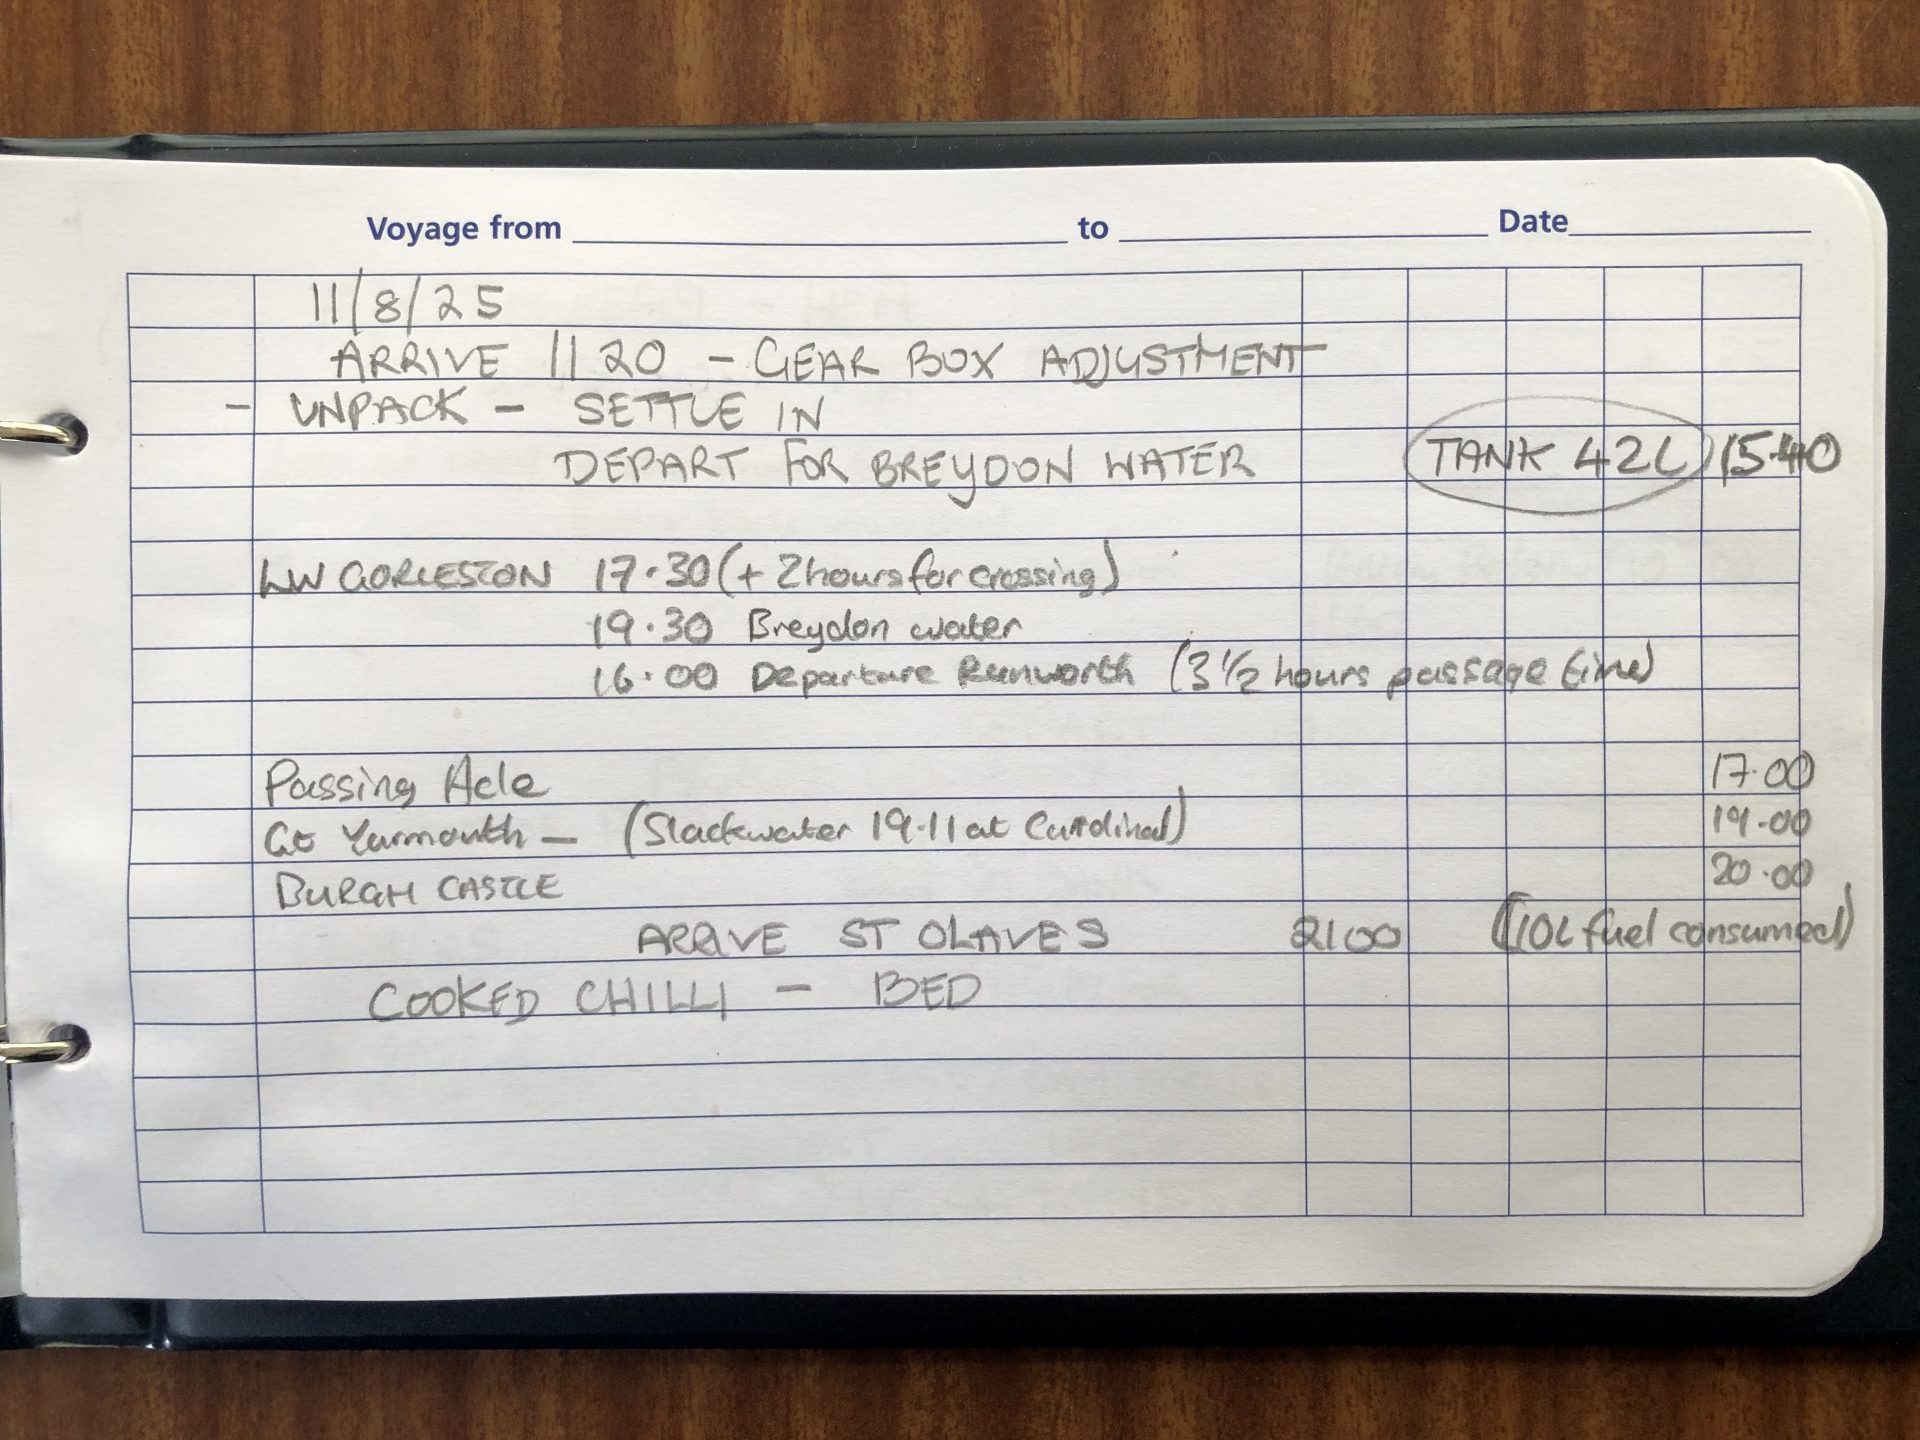 Voyage from to Date
11/8/25
ARRIVE 1120 - GEAR BOX ADJUSTMENT
- UNPACK - SETTLE IN
DEPART FOR BREYDON WATER TANK 42L 15.40
LW GORLESTON 17.30 (+ 2 hours for crossing)
19.30 Breydon water
16.00 Departure Ranworth (3 1/2 hours passage time)
Passing Acle 17.00
Gt Yarmouth - (Slackwater 19.11 at Cardinal) 19.00
BURGH CASTLE 20.00
ARRIVE ST OLAVES 2100 (10L fuel consumed)
COOKED CHILLI - BED